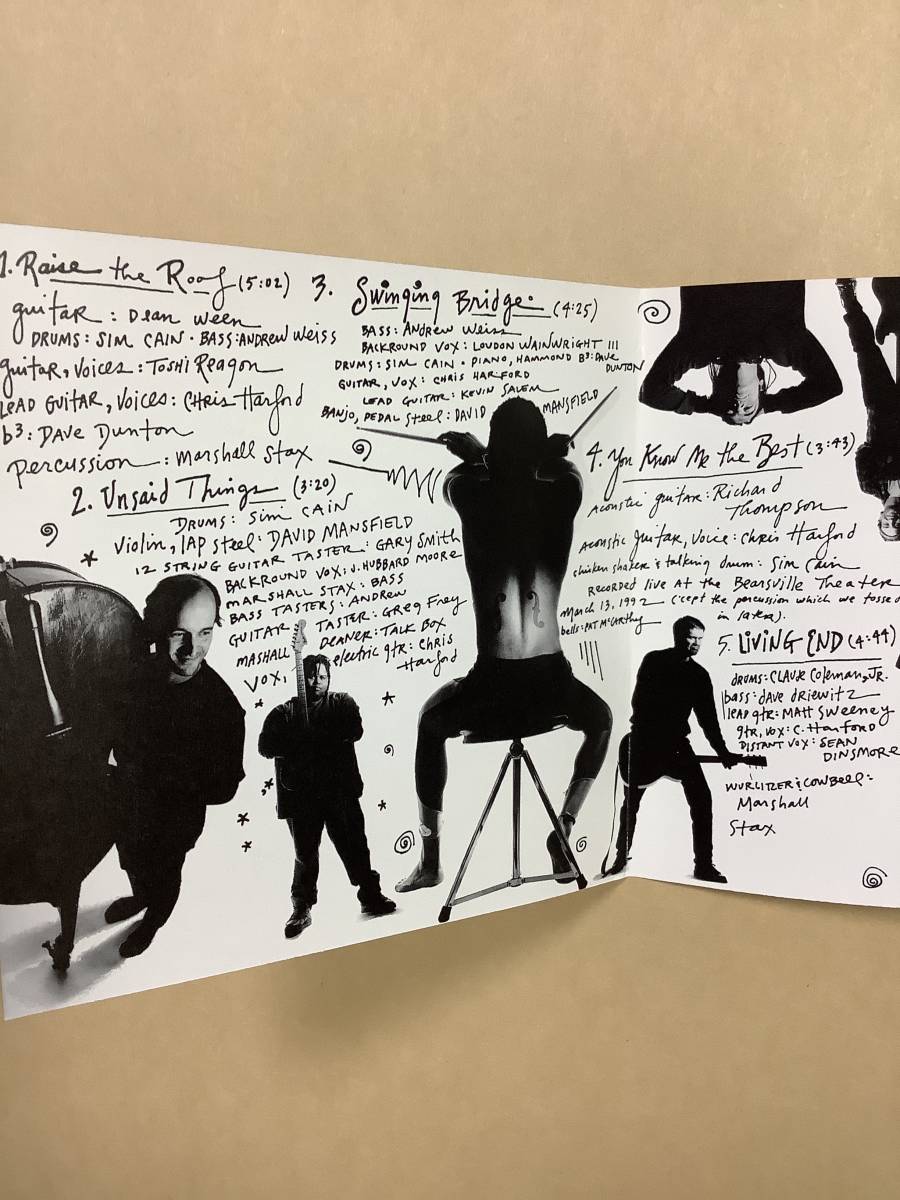 1. Raise the Roof (5:02)
guitar : Dean Ween
DRUMS: SIM CAIN · BASS: ANDREW WEISS
guitar, Voices : Toshi Reagon
LEAD GUITAR, Voices: CHRIS Harford
b3: DAVE DUNTON
percussion : MARSHALL STAX
2. Unsaid Things (3:20)
DRUMS: SIM CAIN
Violin, LAP steel: DAVID MANSFIELD
12 STRING GUITAR TASTER: GARY SMITH
BACKROUND VOX: J. HUBBARD MOORE
MARSHALL STAX: BASS
BASS TASTERS: ANDREW
GUITAR TASTER: Greg Frey
MASHALL DEANER: TALK BOX
VOX, electric gtr: CHRIS
Harford
3. Swinging Bridge (4:25)
BASS: ANDREW WEISS
BACKROUND VOX: LOUDON WAINWRIGHT III
DRUMS: SIM CAIN · PIANO, HAMMOND B3: DAVE
DUNTON
GUITAR, VOX: CHRIS HARFORD
LEAD GUITAR: KEVIN SALEM
BANJO, PEDAL STEEL: DAVID MANSFIELD
4. You Know Me the Best (3:43)
Acoustic guitar: Richard
Thompson
Acoustic guitar, Voice: CHRIS Harford
chicken shaker & talking drum: SIM CAIN
RECORDED LIVE AT the BEARSVILLE THEATER
March 13, 1992 ('cept the percussion which we tossed
in later).
bells: PAT McCARTHY
5. LIVING END (4:44)
DRUMS: CLAUDE COLEMAN, JR.
bass: DAVE DRIEWITZ
LEAD gtr: MATT SWEENEY
gtr, VOX: C. Harford
DISTANT VOX: SEAN
DINSMORE
WURLITZER & COWBELL:
Marshall
Stax